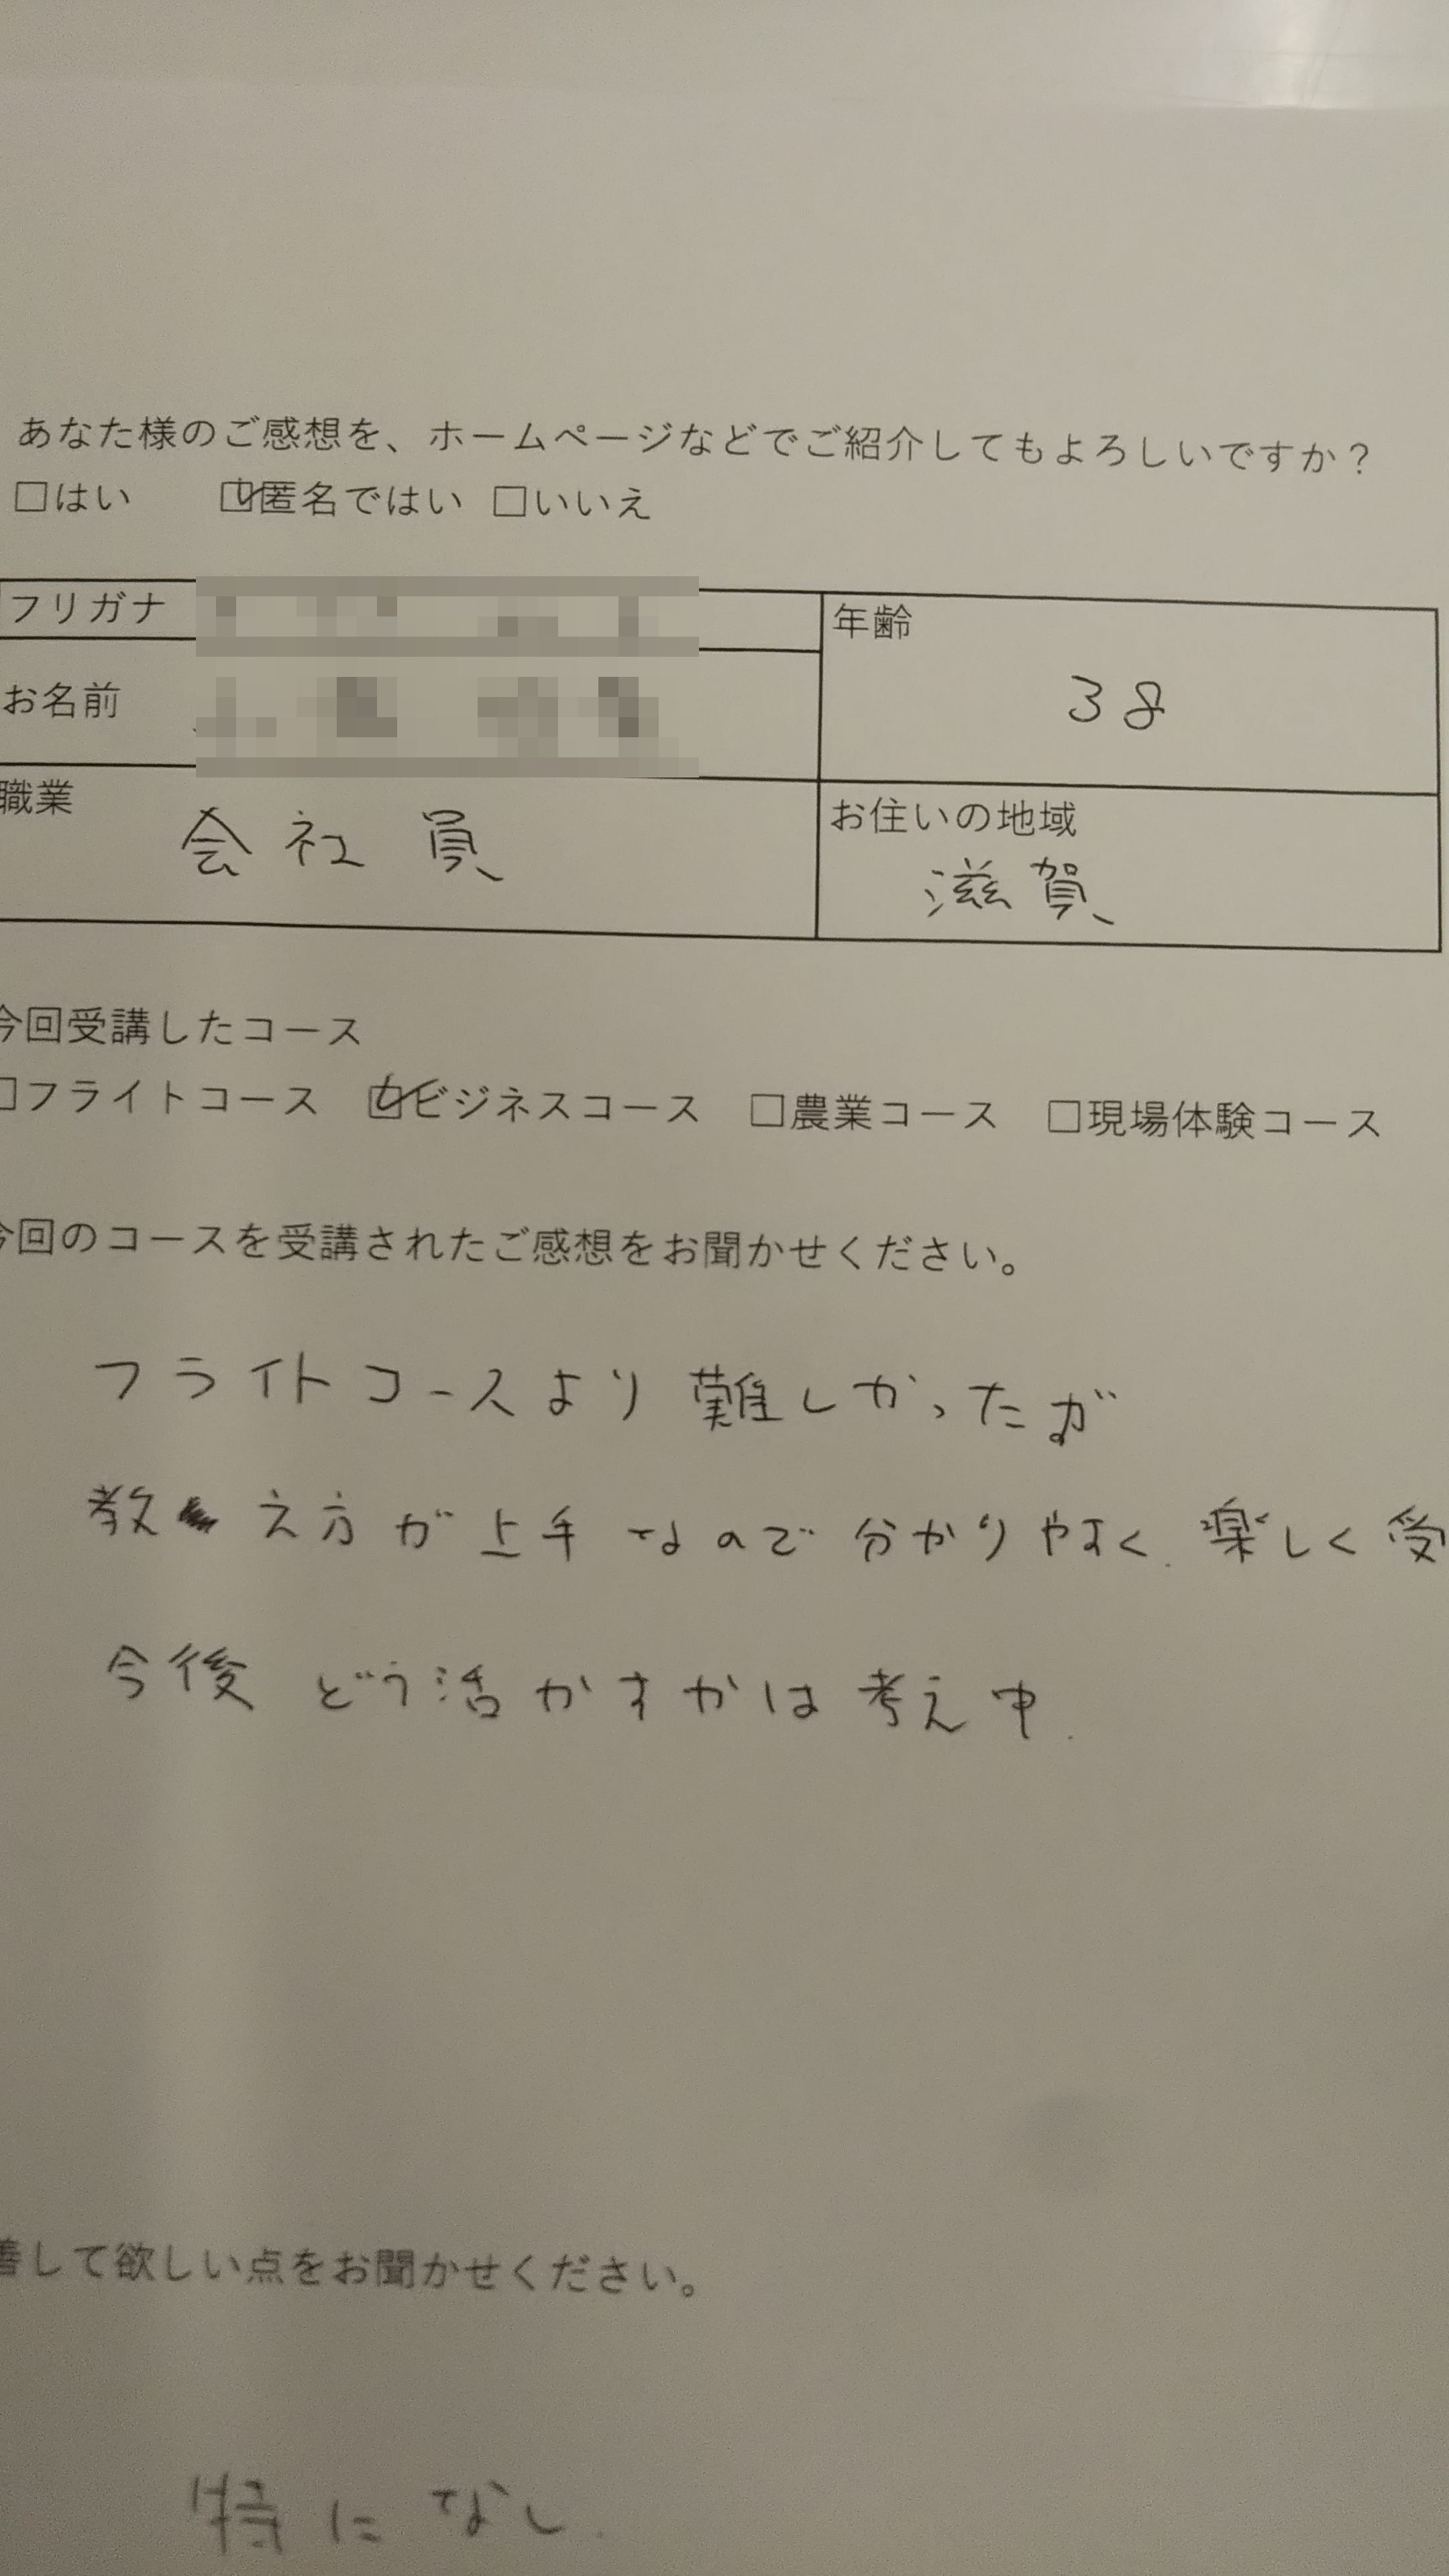 あなた様のご感想を、ホームページなどでご紹介してもよろしいですか？
□はい ☑匿名ではい □いいえ
フリガナ
年齢
お名前
38
職業
会社員
お住いの地域
滋賀
今回受講したコース
□フライトコース ☑ビジネスコース □農業コース □現場体験コース
今回のコースを受講されたご感想をお聞かせください。
フライトコースより難しかったが
教え方が上手なので分かりやすく.楽しく受
今後どう活かすかは考え中.
善して欲しい点をお聞かせください。
特になし.